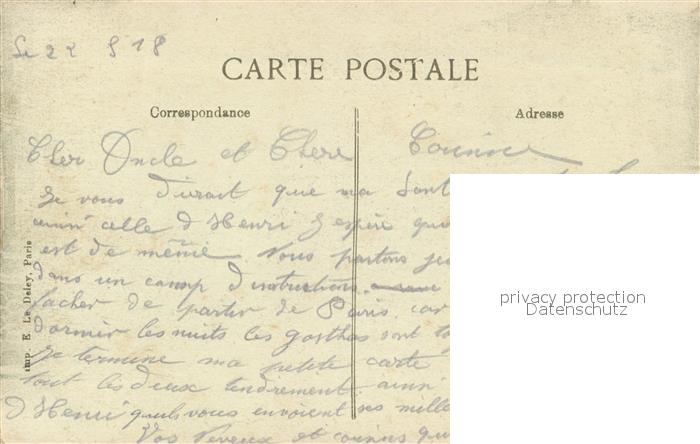 Le 22 8 18
CARTE POSTALE
Correspondance
Adresse
Cher Oncle et Chere Cousine
Je vous dirait que ma Sant
ainsi celle d Henri J espère que
est de même Nous partons je
Dans un camp d instructions.
facher de partir de Paris. car
Dormir les nuits les gothas sont to
Je termine ma petite carte
tout les deux tendrement. ainsi
d Henri quils vous envoient ses mille
Vos Neveux et cousins qu
imp. E. Le Deley, Paris
privacy protection
Datenschutz